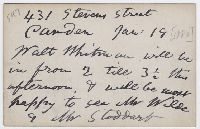 431 Stevens Street
Camden Jan: 18
Walt Whitman will be
in from 2 till 3½ this
afternoon, & will be most
happy to see Mr Wilde
& Mr Stoddart